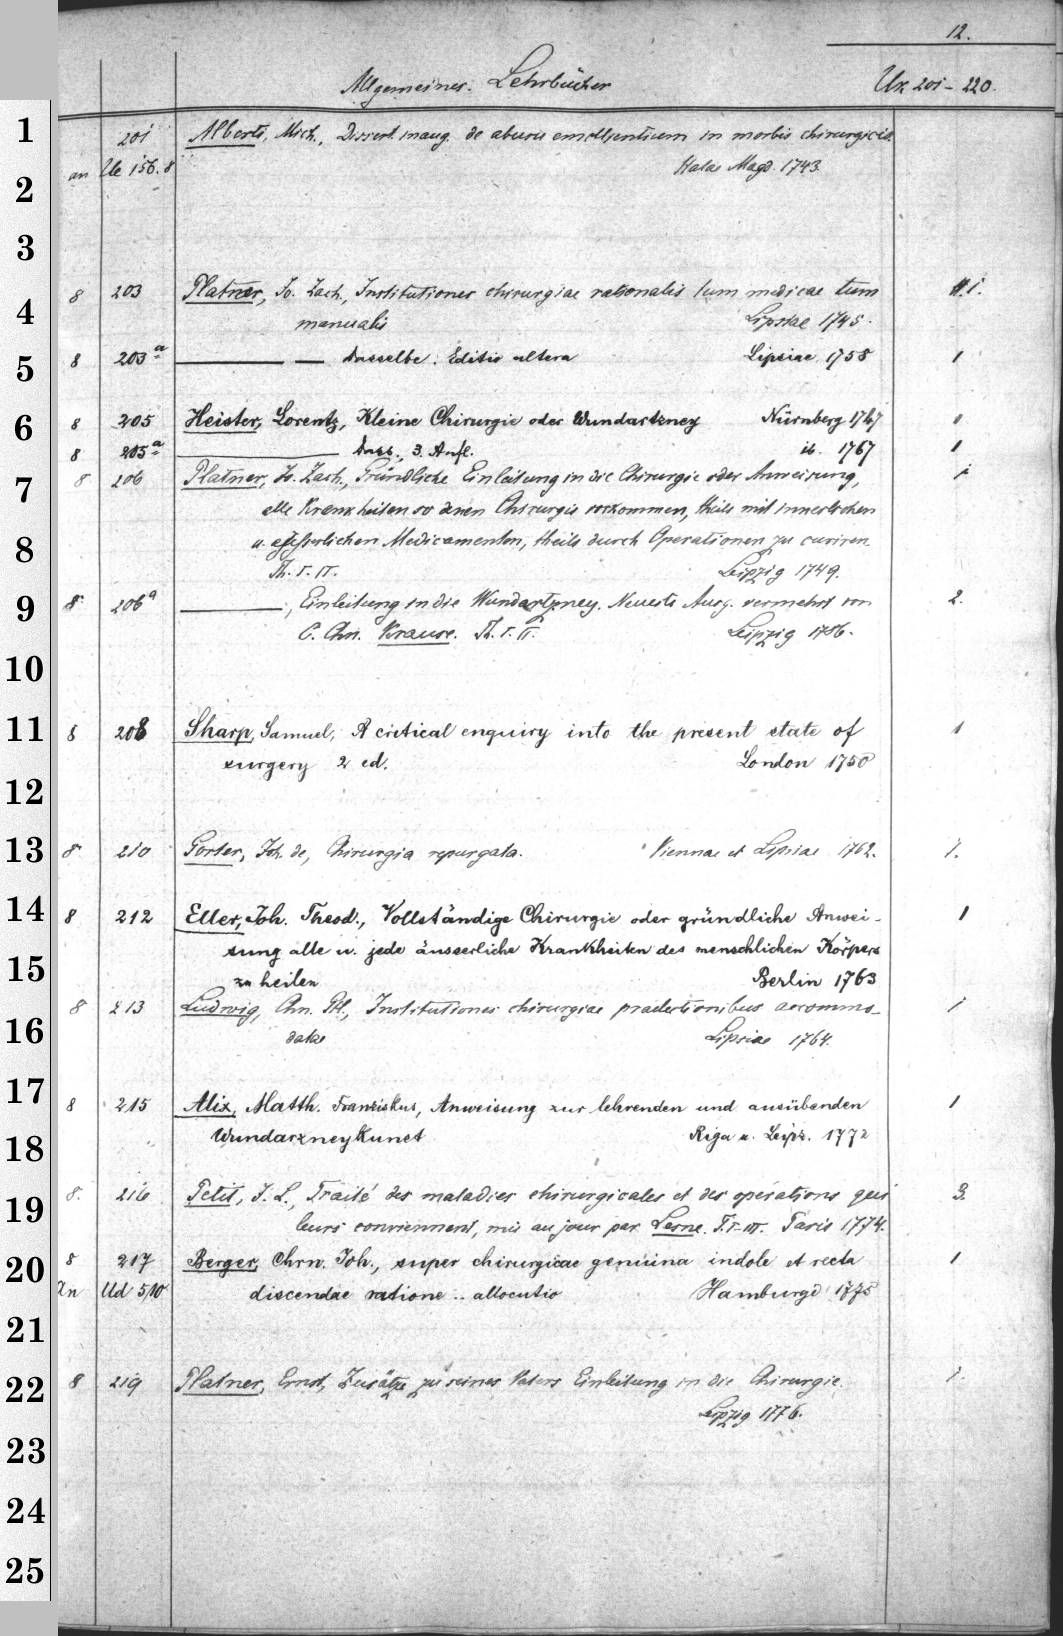 12.
Allgemeines. Lehrbücher Ux 201-220.
1 201 Alberti, Mich., Dissert. inaug. de abusu emollientium in morbis chirurgicis.
an Ue 156. 8 Halae Magd. 1743.
2
3
8 203 Platner, Jo. Zach., Institutiones chirurgiae rationalis tum medicae tum 1.
4 manualis Lipsiae 1745.
5 8 203a Dasselbe. Editio altera Lipsiae 1758 1
6 8 205 Heister, Lorentz, Kleine Chirurgie oder Wundartzney Nürnberg 1747 1
8 205a Dass., 3. Aufl. ib. 1767 1
7 8 206 Platner, Jo. Zach., Gründliche Einleitung in die Chirurgie oder Anweisung, 1
alle Krankheiten so denen Chirurgis vorkommen, theils mit innerlichen
8 u. äußerlichen Medicamenten, theils durch Operationen zu curiren
Th. I. II. Leipzig 1749.
9 8 206a , Einleitung in die Wundartzney. Neueste Ausg. vermehrt von 2.
C. Chn. Krause. Th. I. II. Leipzig 1786.
10
11 8 208 Sharp, Samuel, A critical enquiry into the present state of 1
surgery 2 ed. London 1750
12
13 8 210 Gorter, Joh. de, Chirurgia repurgata. Viennae et Lipsiae 1762. 1.
14 8 212 Eller, Joh. Theod., Vollständige Chirurgie oder gründliche Anwei- 1
sung alle u. jede äusserliche Krankheiten des menschlichen Körpers
15 zu heilen Berlin 1763
8 213 Ludwig, Chn. Gtl., Institutiones chirurgiae praelectionibus accommo- 1
16 datae Lipsiae 1764.
17 8 215 Alix, Matth. Franziskus, Anweisung zur lehrenden und ausübenden 1
18 Wundarzneykunst Riga u. Leipz. 1772
8. 216 Petit, J. L., Traité des maladies chirurgicales et des opérations qui 3.
19 leurs conviennent, mis au jour par Lesne. T. I-III. Paris 1774.
20 8 217 Berger, Chrn. Joh., super chirurgicae genuina indole et recta 1
In Ud 510 discendae ratione .. allocutio Hamburgi 1775
21
22 8 219 Platner, Ernst, Zusätze zu seines Vaters Einleitung in die Chirurgie. 1.
Leipzig 1776.
23
24
25